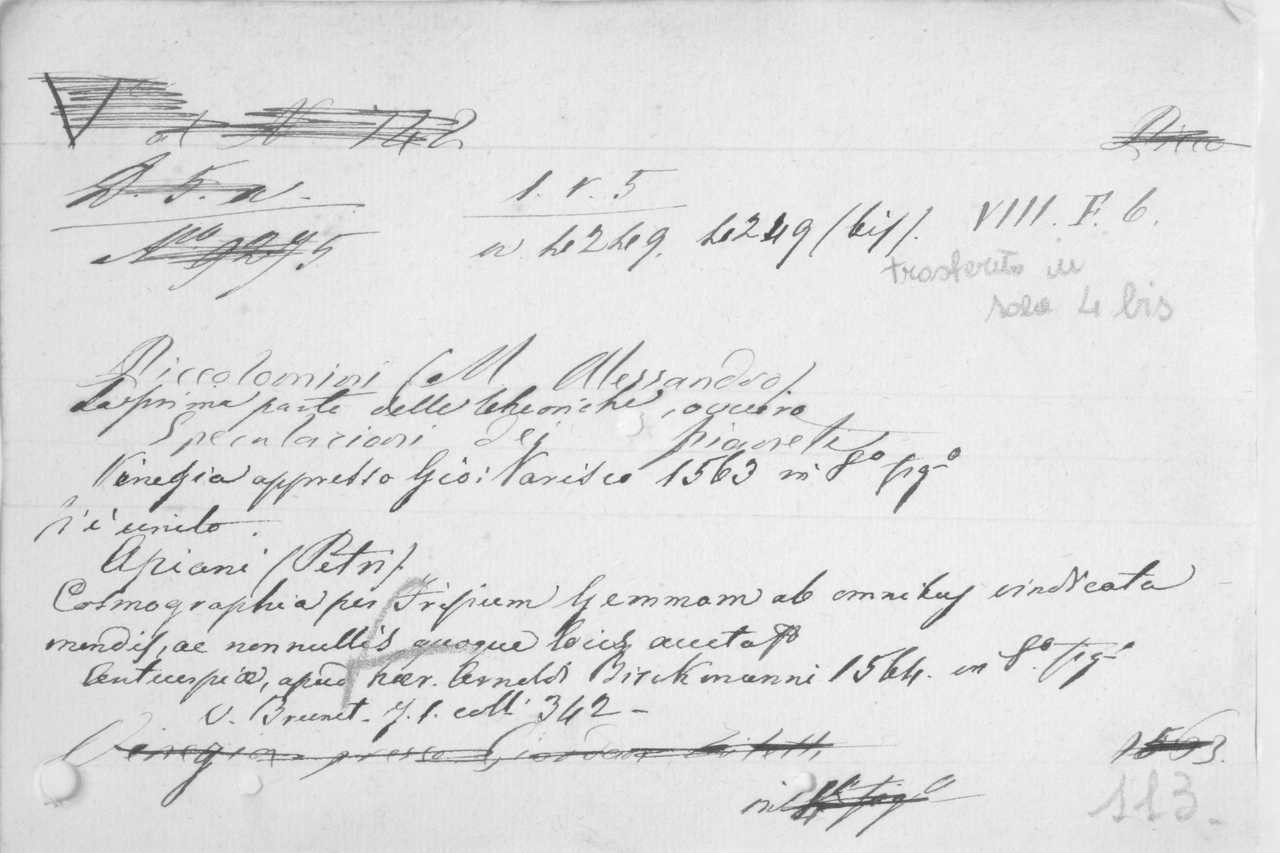 V at N 142
Picco
D. 5. a.
1. v. 5
N.ro 9295
a 4249. 4249 (bis).
VIII. F. 6.
trasferito in
sala 4 bis
Piccolomini (M Alessandro)
La prima parte delle theoriche, ovvero
Speculazioni dei pianeti
Venegia appresso Gio: Varisco 1563 in 8.º fig.º
s'è unito.
Apiani (Petri).
Cosmographia per Frisium Gemmam ab omnibus vindicata
mendis, ac nonnullis quoque locis aucta
Antuerpiæ, apud hær. Arnoldi Birckmanni 1564. in 8.º fig.º
V. Brunet. T. 1. coll. 342 -
Venegia presso Giordan Ziletti 1563.
in 4.º fig.º
113.